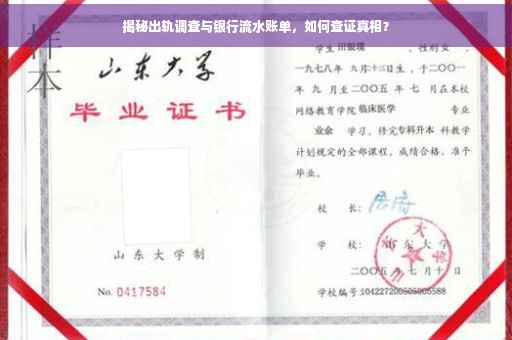 揭秘出轨调查与银行流水账单，如何查证真相？
样本
山东大学
毕业证书
山东大学制
No. 0417584
学生 田银環 ，性别 女 ，
一九七八年 九月十三日生，于二〇〇一
年 九 月至二〇〇五 年 七 月在本校
网络教育学院 临床医学 专业
业余 学习，修完专科升本科教学
计划规定的全部课程，成绩合格，准予
毕业。
校 长：
学 校： 山东大学
二〇〇五 年 七 月 十 日
学校编号：104227200505005588